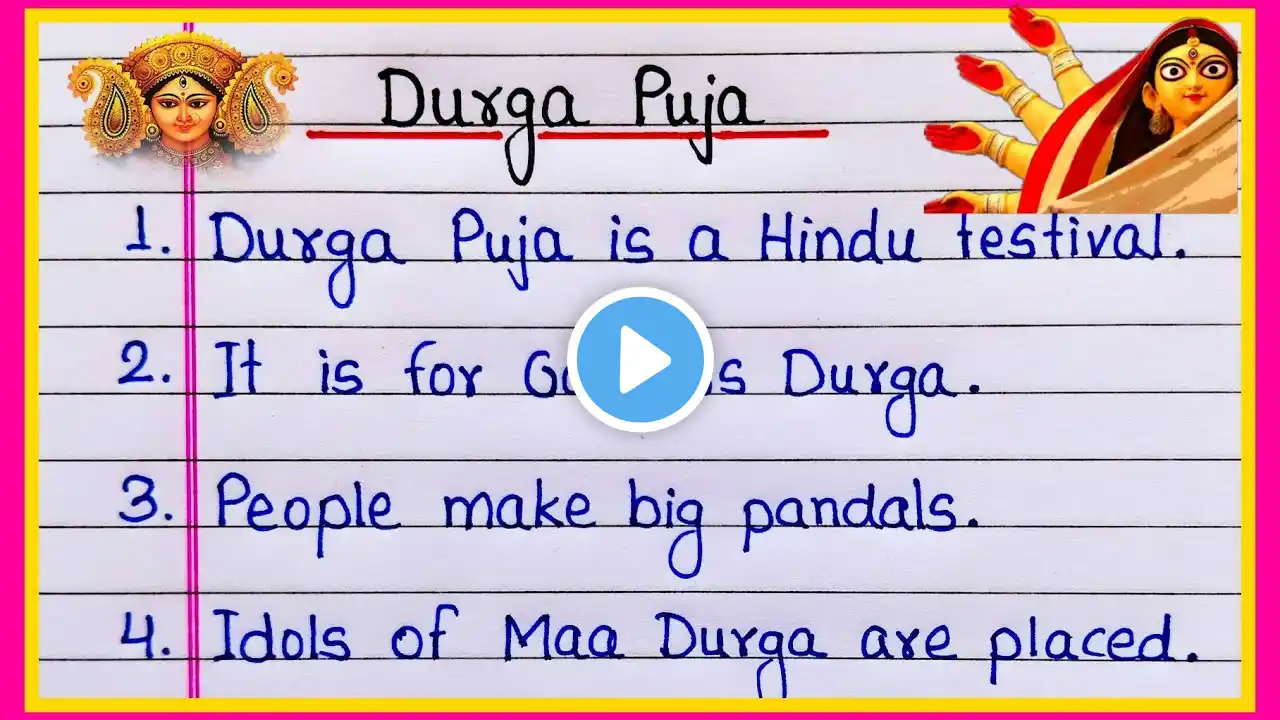 Durga Puja
1. Durga Puja is a Hindu festival.
2. It is for Durga.
3. People make big pandals.
4. Idols of Maa Durga are placed.